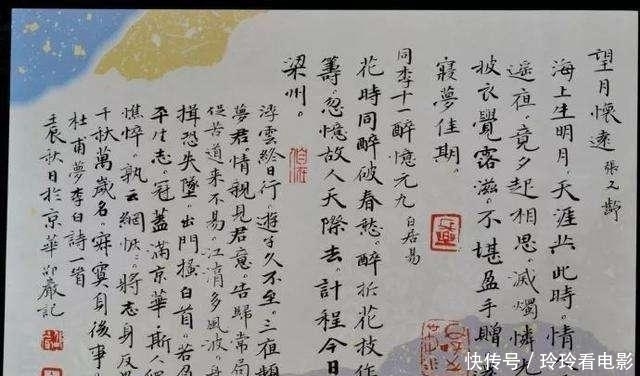 望月懷遠 張九齡
海上生明月。天涯共此時。情
遥夜，竟夕起相思。滅燭憐光
披衣覺露滋。不堪盈手贈
寢夢佳期。
同李十一醉憶元九 白居易
花時同醉破春愁。醉折花枝作
籌。忽憶故人天際去。計程今日
梁州。
浮雲終日行。遊子久不至。三夜頻
夢君情親見君意。告歸常局
促苦道來不易。江湖多風波。舟
楫恐失墜。出門搔白首。若負
平生志。冠蓋滿京華。斯人獨
憔悴。孰云網恢。將老身反
千秋萬歲名。寂寞身後事
杜甫夢李白詩一首
壬辰秋日於京華 嚴記
快传号/玲玲看电影